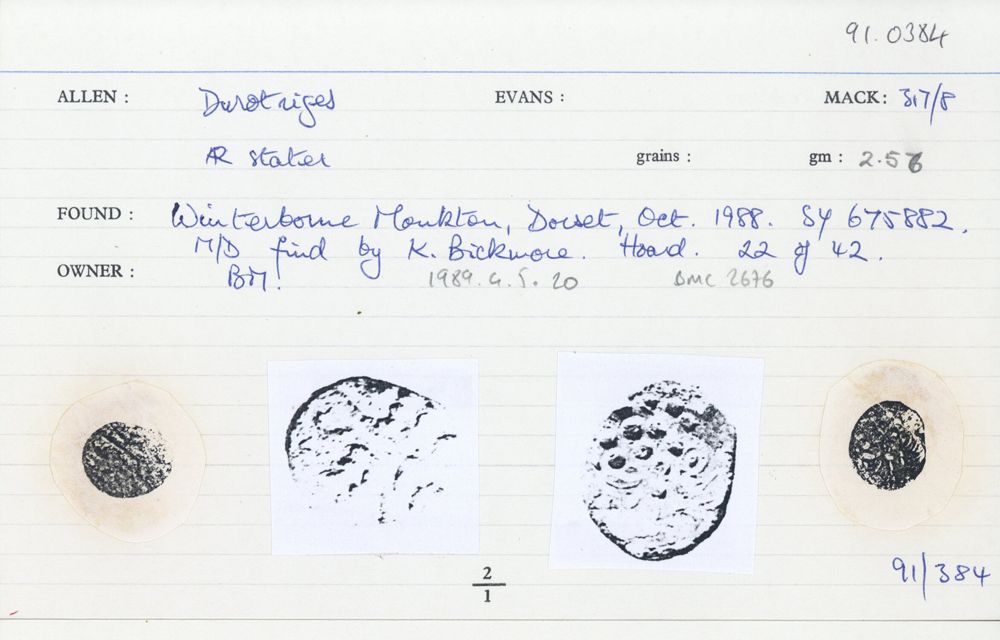 91.0384
ALLEN : Durotriges EVANS : MACK: 317/8
AR stater grains : gm : 2.56
FOUND : Winterborne Monkton, Dorset, Oct. 1988. SY 675882.
M/D find by K. Bickmore. Hoard. 22 of 42.
OWNER : BM. 1989.9.5.20 BMC 2676
2
1
91/384